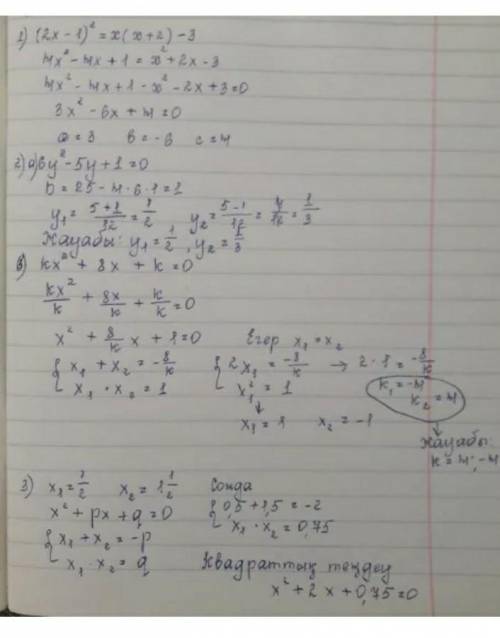 1) (2x-1)² = x(x+2)-3
4x²-4x+1 = x²+2x-3
4x²-4x+1-x²-2x+3=0
3x²-6x+4=0
a=3 b=-6 c=4
2) а) 6y²-5y+1=0
D=25-4·6·1=1
y₁= (5+1)/12 = 1/2 y₂= (5-1)/12 = 4/12 = 1/3
Жауабы: y₁= 1/2, y₂= 1/3
в) kx²+8x+k=0
kx²/k + 8x/k + k/k =0
x² + 8/k x + 1=0 Егер x₁=x₂
{ x₁+x₂= -8/k { 2x₁= -8/k → 2·1= -8/k
x₁·x₂=1 x₁²=1 k₁=-4 k₂=4
↓ ↓
x₁=1 x₂=-1 Жауабы:
k=4; -4
3) x₁= 1/2 x₂= 1 1/2 Сонда
x²+px+q=0 { 0,5+1,5=-2
{ x₁+x₂=-p x₁·x₂=0,75
x₁·x₂=q Квадраттық теңдеу
x²+2x+0,75=0